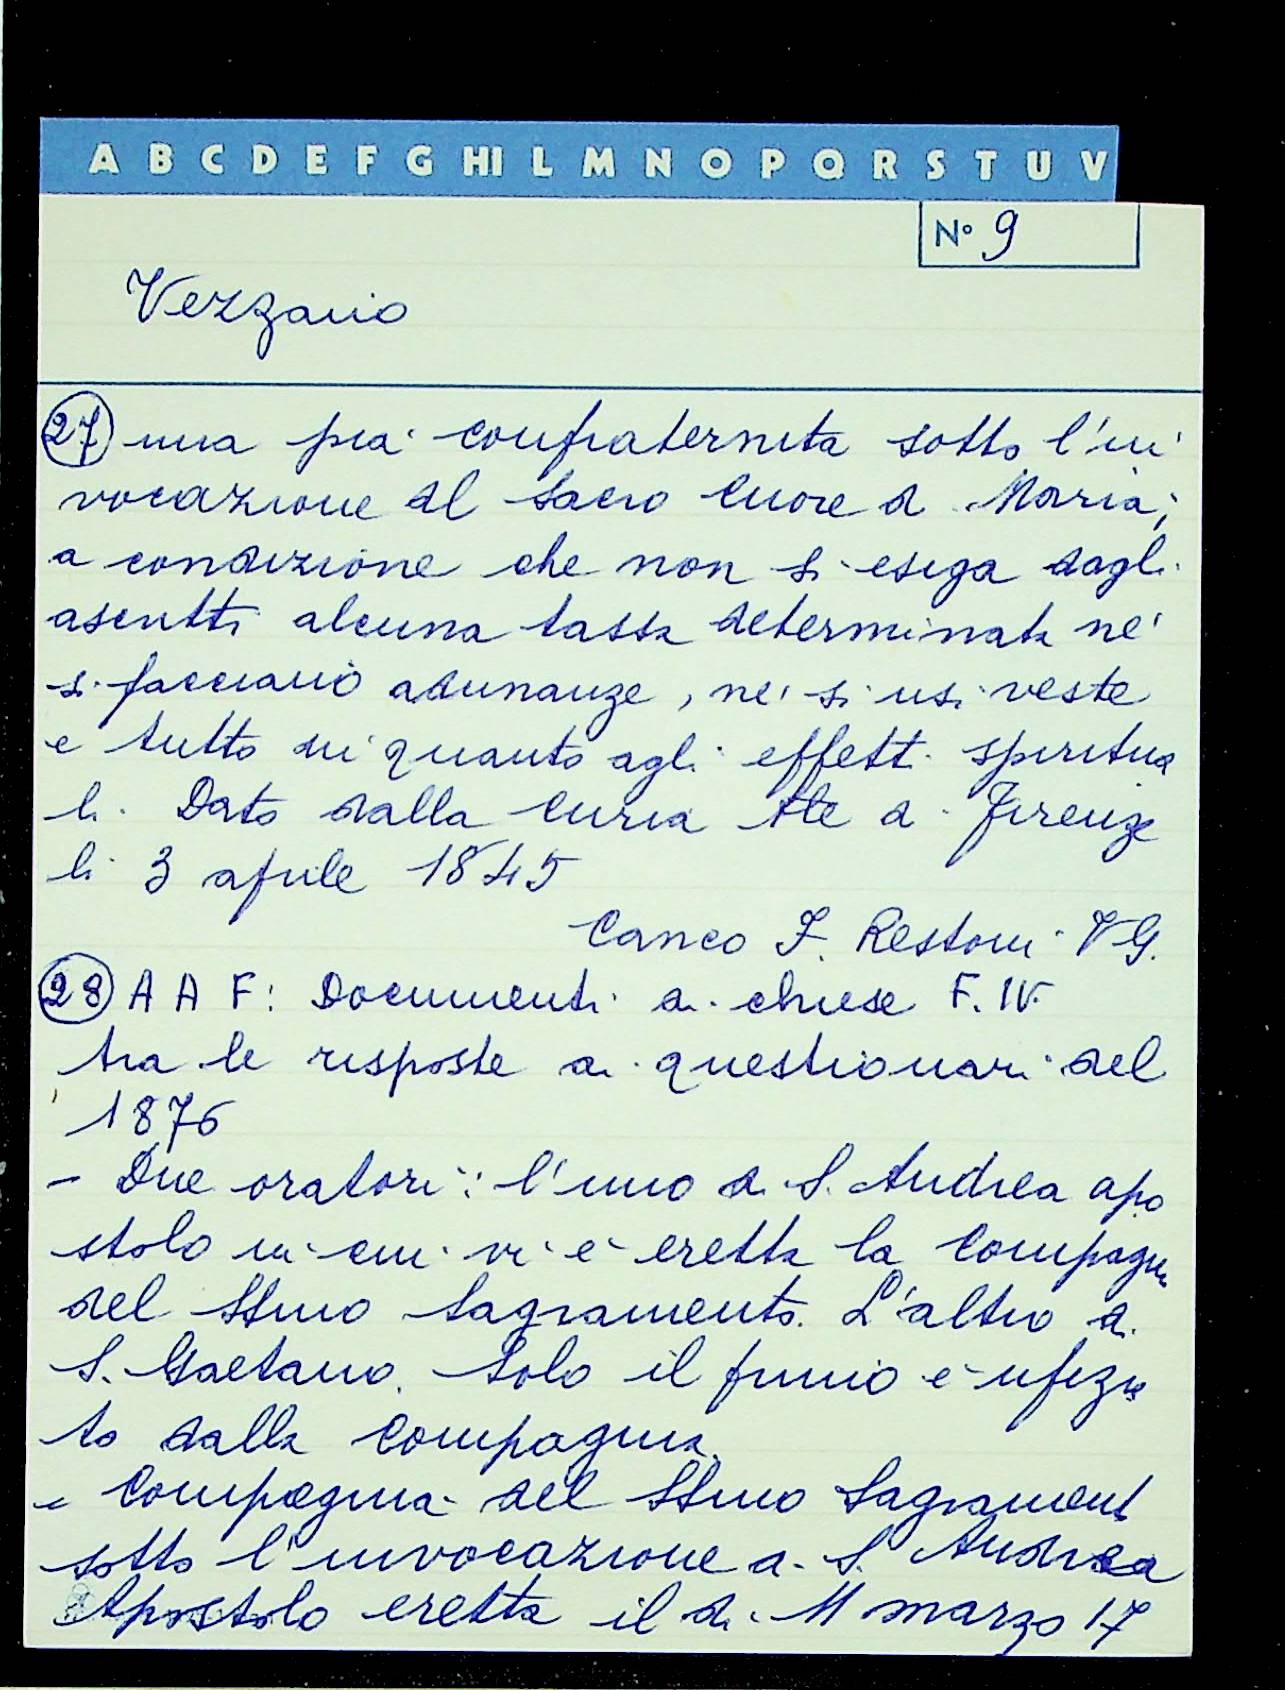 A B C D E F G HI L M N O P Q R S T U V
N° 9
Vezzano
27 una pia confraternita sotto l'in
vocazione del Sacro Cuore di Maria;
a condizione che non si esiga dagli
ascritti alcuna tassa determinata né
si facciano adunanze, né si usi veste
e tutto in quanto agli effetti spiritua
li. Dato dalla Curia di Firenze
li 3 aprile 1845
Canco F. Restoni VG.
28 A A F: Documenti di chiese F. IV
tra le risposte ai questionari del
1876
- Due oratori: l'uno di S. Andrea apo
stolo in cui vi è eretta la Compagn
del SSmo Sagramento. L'altro di
S. Gaetano. Solo il primo è ufizia
to dalla Compagnia.
- Compagnia del SSmo Sagrament
sotto l'invocazione di S. Andrea
Apostolo eretta il dì 11 marzo 17